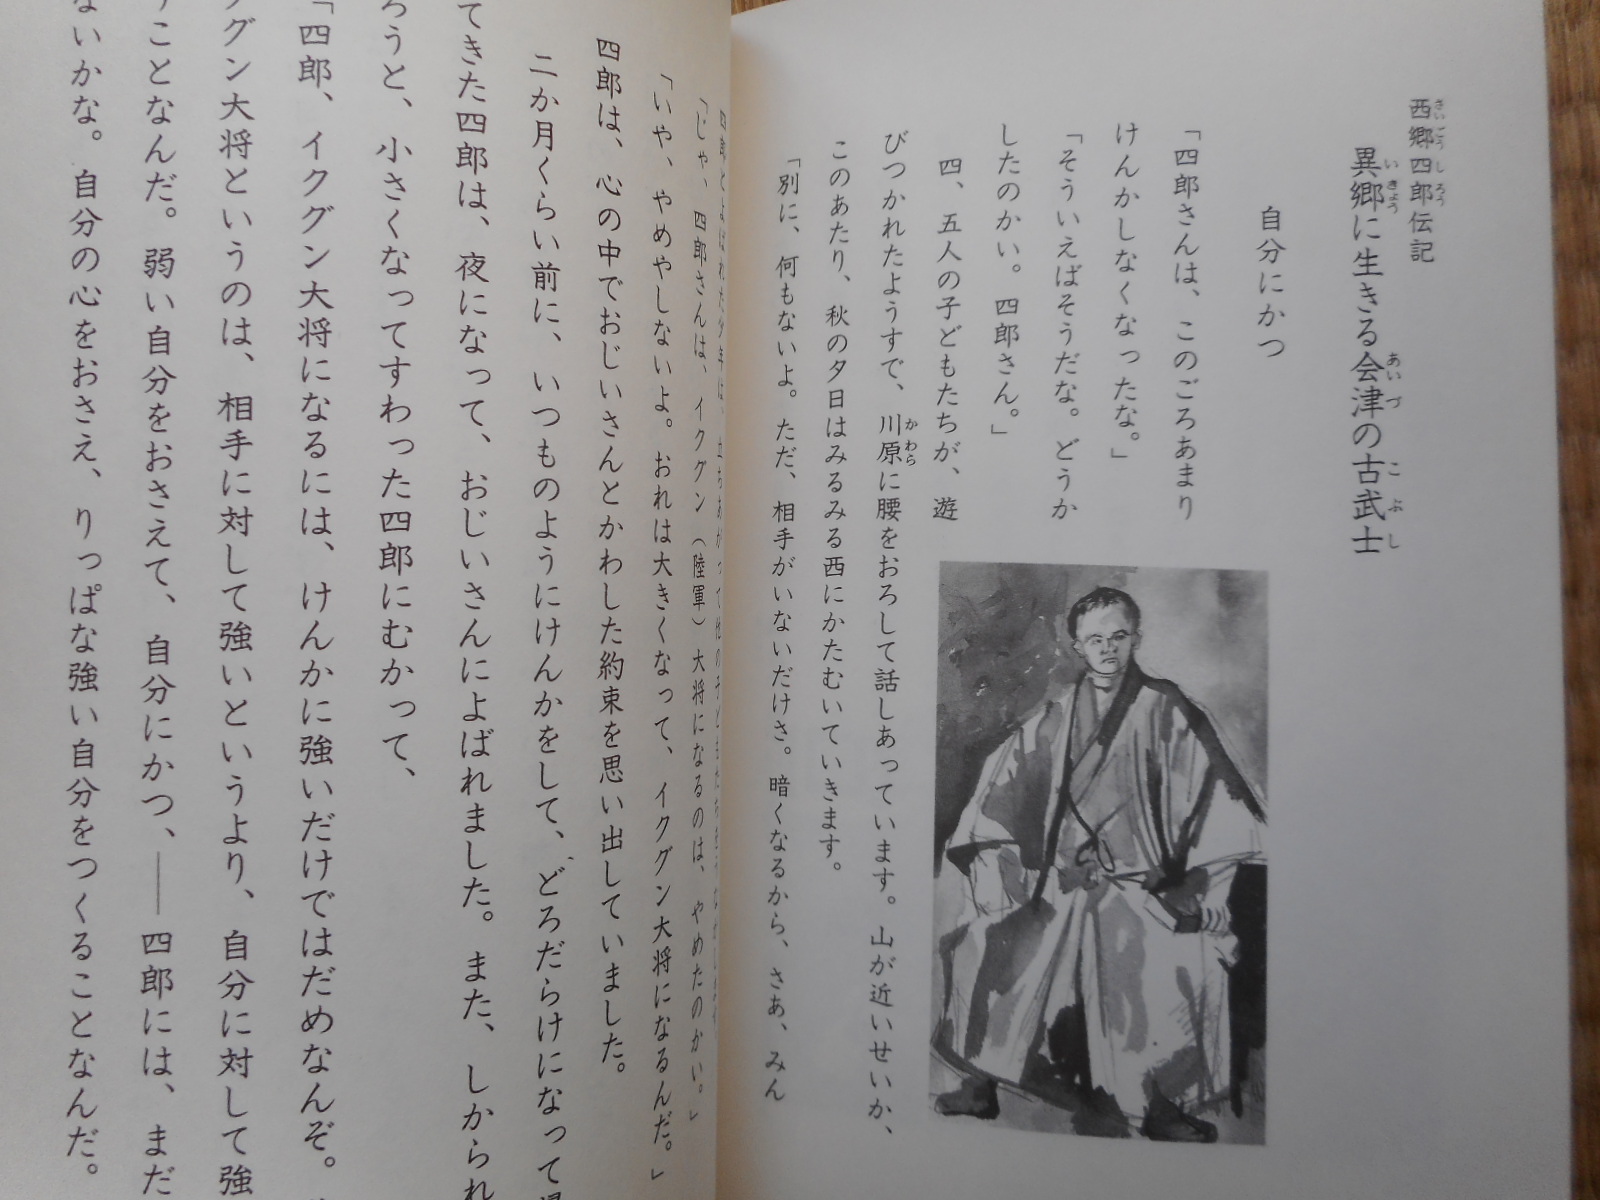 西郷四郎伝記
異郷に生きる会津の古武士
自分にかつ
「四郎さんは、このごろあまり
けんかしなくなったな。」
「そういえばそうだな。どうか
したのかい。四郎さん。」
四、五人の子どもたちが、遊
びつかれたようすで、川原に腰をおろして話しあっています。山が近いせいか、
このあたり、秋の夕日はみるみる西にかたむいていきます。
「別に、何もないよ。ただ、相手がいないだけさ。暗くなるから、さあ、みん
四郎とよばれた少年は、立ちあがって他の子どもたちを
「じゃ、四郎さんは、イクグン（陸軍）大将になるのは、やめたのかい。」
「いや、やめやしないよ。おれは大きくなって、イクグン大将になるんだ。」
四郎は、心の中でおじいさんとかわした約束を思い出していました。
二か月くらい前に、いつものようにけんかをして、どろだらけになって
てきた四郎は、夜になって、おじいさんによばれました。また、しかられ
ろうと、小さくなってすわった四郎にむかって、
「四郎、イクグン大将になるには、けんかに強いだけではだめなんぞ。
グン大将というのは、相手に対して強いというより、自分に対して強
ことなんだ。弱い自分をおさえて、自分にかつ、――四郎には、まだ
ないかな。自分の心をおさえ、りっぱな強い自分をつくることなんだ。